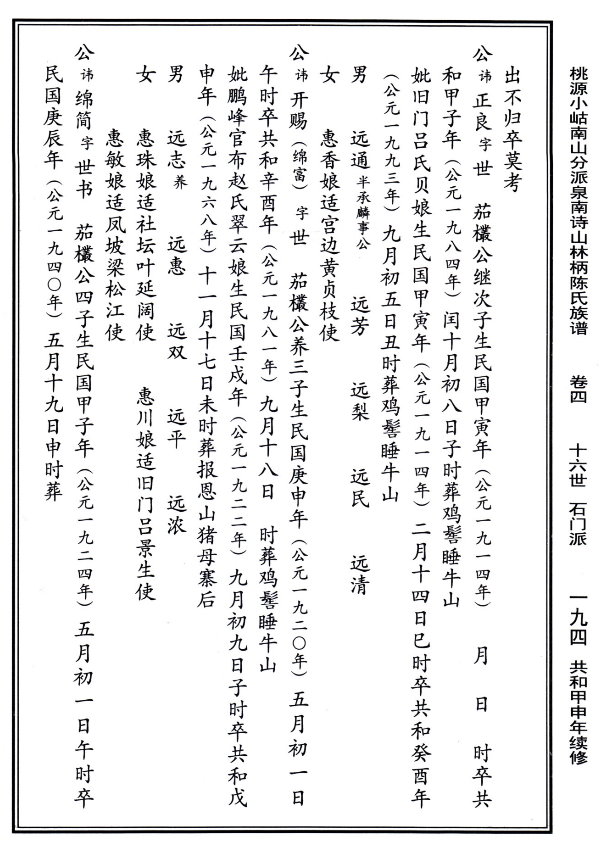 桃源小岵南山分派泉南诗山林柄陈氏族谱 卷四 十六世 石门派 一九四 共和甲申年续修
出不归卒莫考
公讳正良字世 茄欉公继次子生民国甲寅年（公元一九一四年） 月 日 时卒共
和甲子年（公元一九八四年）闰十月初八日子时葬鸡髻睡牛山
妣旧门吕氏贝娘生民国甲寅年（公元一九一四年）二月十四日巳时卒共和癸酉年
（公元一九九三年）九月初五日丑时葬鸡髻睡牛山
男 远通半承麟事公 远芳 远梨 远民 远清
女 惠香娘适宫边黄贞枝使
公讳开赐（绵富）字世 茄欉公养三子生民国庚申年（公元一九二〇年）五月初一日
午时卒共和辛酉年（公元一九八一年）九月十八日 时葬鸡髻睡牛山
妣鹏峰官布赵氏翠云娘生民国壬戌年（公元一九二二年）九月初九日子时卒共和戊
申年（公元一九六八年）十一月十七日未时葬报恩山猪母寨后
男 远志养 远惠 远双 远平 远浓
女 惠珠娘适社坛叶延阔使 惠川娘适旧门吕景生使
惠敏娘适凤坡梁松江使
公讳绵简字世书 茄欉公四子生民国甲子年（公元一九二四年）五月初一日午时卒
民国庚辰年（公元一九四〇年）五月十九日申时葬